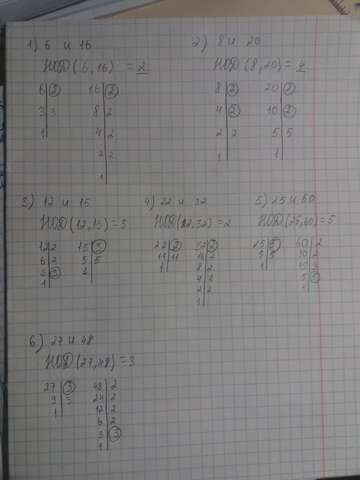 1) 6 и 16
2) 8 и 20
НОД (6,16) = 2
НОД (8,20) = 4
6 | 2 16 | 2
8 | 2 20 | 2
3 | 3 8 | 2
4 | 2 10 | 2
1 | 4 | 2
2 | 2 5 | 5
2 | 2
1 | 1 |
1 |
3) 12 и 15
4) 22 и 32
5) 25 и 60
НОД (12,15) = 3
НОД (22,32) = 2
НОД (25,60) = 5
12 | 2 15 | 3
22 | 2 32 | 2
25 | 5 60 | 2
6 | 2 5 | 5
11 | 11 16 | 2
5 | 5 30 | 2
3 | 3 1 |
1 | 8 | 2
1 | 15 | 3
1 |
4 | 2
5 | 5
2 | 2
1 |
1 |
6) 27 и 48
НОД (27,48) = 3
27 | 3 48 | 2
9 | 3 24 | 2
1 | 12 | 2
6 | 2
3 | 3
1 |